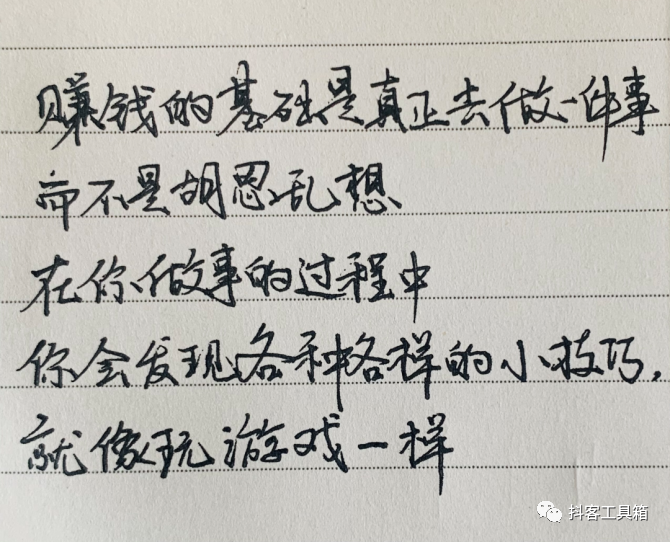 赚钱的基础是真正去做一件事
而不是胡思乱想
在你做事的过程中
你会发现各种各样的小技巧，
就像玩游戏一样
抖客工具箱